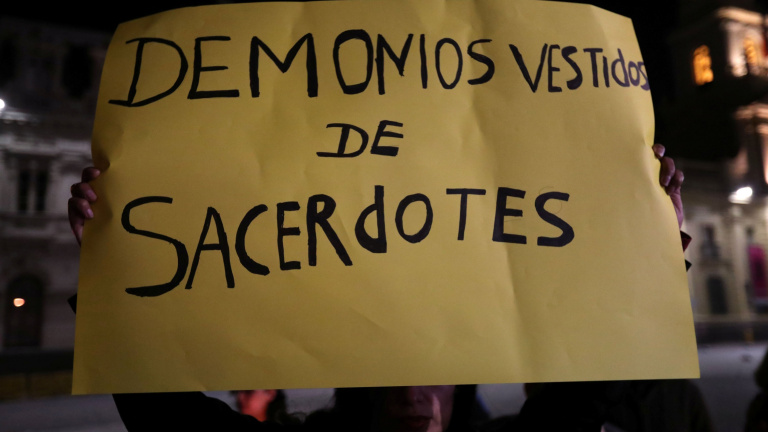 DEMONIOS VESTIdOS
DE
SACERdOTES